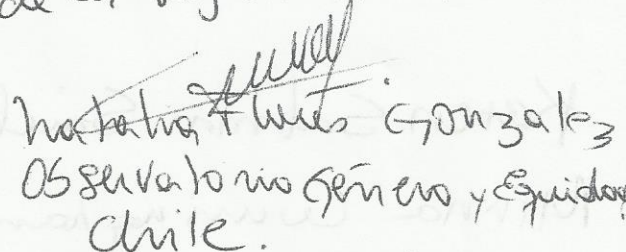 de
Natalia Flores Gonzalez
Observatorio Género y Equidad
Chile.